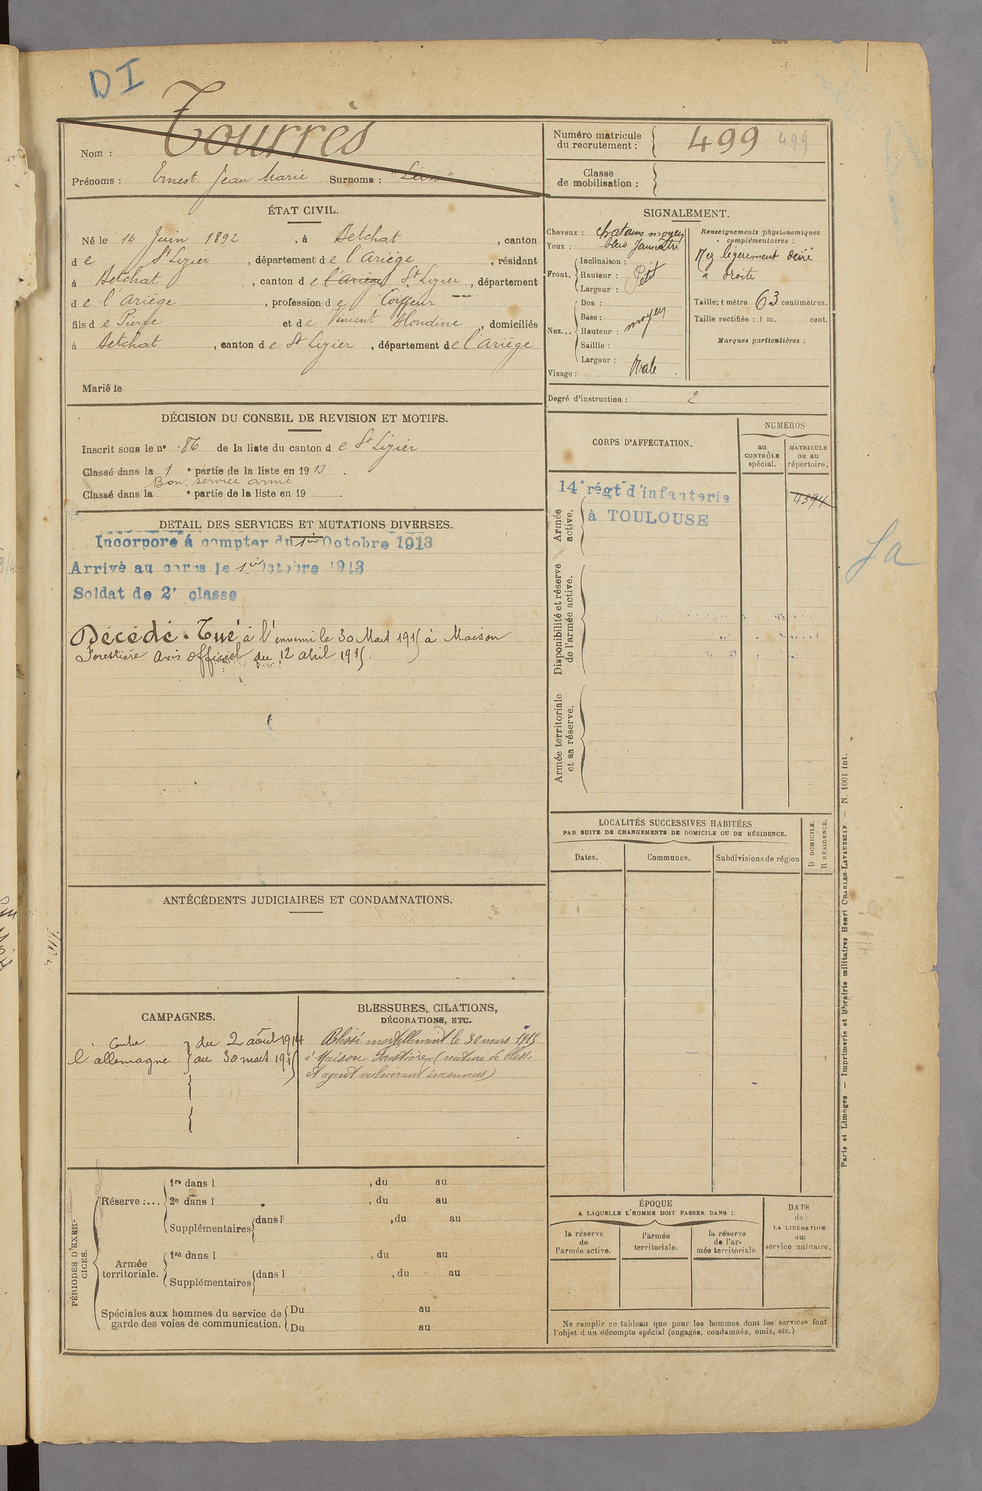 DI
Nom : Tourrès
Prénoms : Ernest Jean Marie Surnoms : "Léon"
Numéro matricule du recrutement : 499 499
Classe de mobilisation :
ÉTAT CIVIL.
Né le 14 Juin 1892, à Betchat, canton
de St Lizier, département de l'Ariège, résidant
à Betchat, canton de l'Ariège St Lizier, département
de l'Ariège, profession de Coiffeur
fils de Pierre et de Vincent Blondine, domiciliés
à Betchat, canton de St Lizier, département de l'Ariège
Marié le
SIGNALEMENT.
Cheveux : chatains moyen
Yeux : bleu jaunâtre
Front. Inclinaison :
Hauteur : Petit
Largeur :
Nez... Dos :
Base :
Hauteur : moyen
Saillie :
Largeur :
Visage : Ovale
Renseignements physionomiques complémentaires :
Nez légèrement dévié
à droite
Taille : 1 mètre 63 centimètres.
Taille rectifiée : 1 m. cent.
Marques particulières :
Degré d'instruction : 2
DÉCISION DU CONSEIL DE REVISION ET MOTIFS.
Inscrit sous le n° 86 de la liste du canton de St Lizier
Classé dans la 1e partie de la liste en 1913.
Bon service armé
Classé dans la e partie de la liste en 19 .
DETAIL DES SERVICES ET MUTATIONS DIVERSES.
Incorporé à compter du 1er Octobre 1913
Arrivé au corps le 1er Octobre 1913
Soldat de 2e classe
Décédé. Tué à l'ennemi le 30 Mars 1915 à Maison
Forestière avis officiel du 12 avril 1915.
CORPS D'AFFECTATION.
NUMÉROS
au CONTRÔLE spécial.
MATRICULE ou au répertoire.
Armée active,
14e régt d'infanterie
à TOULOUSE
4394
Disponibilité et réserve de l'armée active.
Armée territoriale et sa réserve.
La
LOCALITÉS SUCCESSIVES HABITÉES
PAR SUITE DE CHANGEMENTS DE DOMICILE OU DE RÉSIDENCE.
Dates. Communes. Subdivisions de région D DOMICILE. R RÉSIDENCE.
ANTÉCÉDENTS JUDICIAIRES ET CONDAMNATIONS.
CAMPAGNES.
Contre du 2 août 1914
l'allemagne au 30 mars 1915
BLESSURES, CITATIONS,
DÉCORATIONS, ETC.
Blessé mortellement le 30 mars 1915
à Maison Forestière (nature de bless.
et agent vulnérant inconnus)
PÉRIODES D'EXERCICES.
Réserve :... 1re dans l , du au
2e dans l , du au
Supplémentaires dans l , du au
Armée territoriale. 1re dans l , du au
Supplémentaires dans l , du au
Spéciales aux hommes du service de garde des voies de communication. Du au
Du au
ÉPOQUE
A LAQUELLE L'HOMME DOIT PASSER DANS :
la réserve de l'armée active.
l'armée territoriale.
la réserve de l'armée territoriale.
DATE de LA LIBÉRATION du service militaire.
Ne remplir ce tableau que pour les hommes dont les services font
l'objet d'un décompte spécial (engagés, condamnés, omis, etc.)
Paris et Limoges. — Imprimerie et librairie militaires Henri CHARLES-LAVAUZELLE. — N. 1001 int.